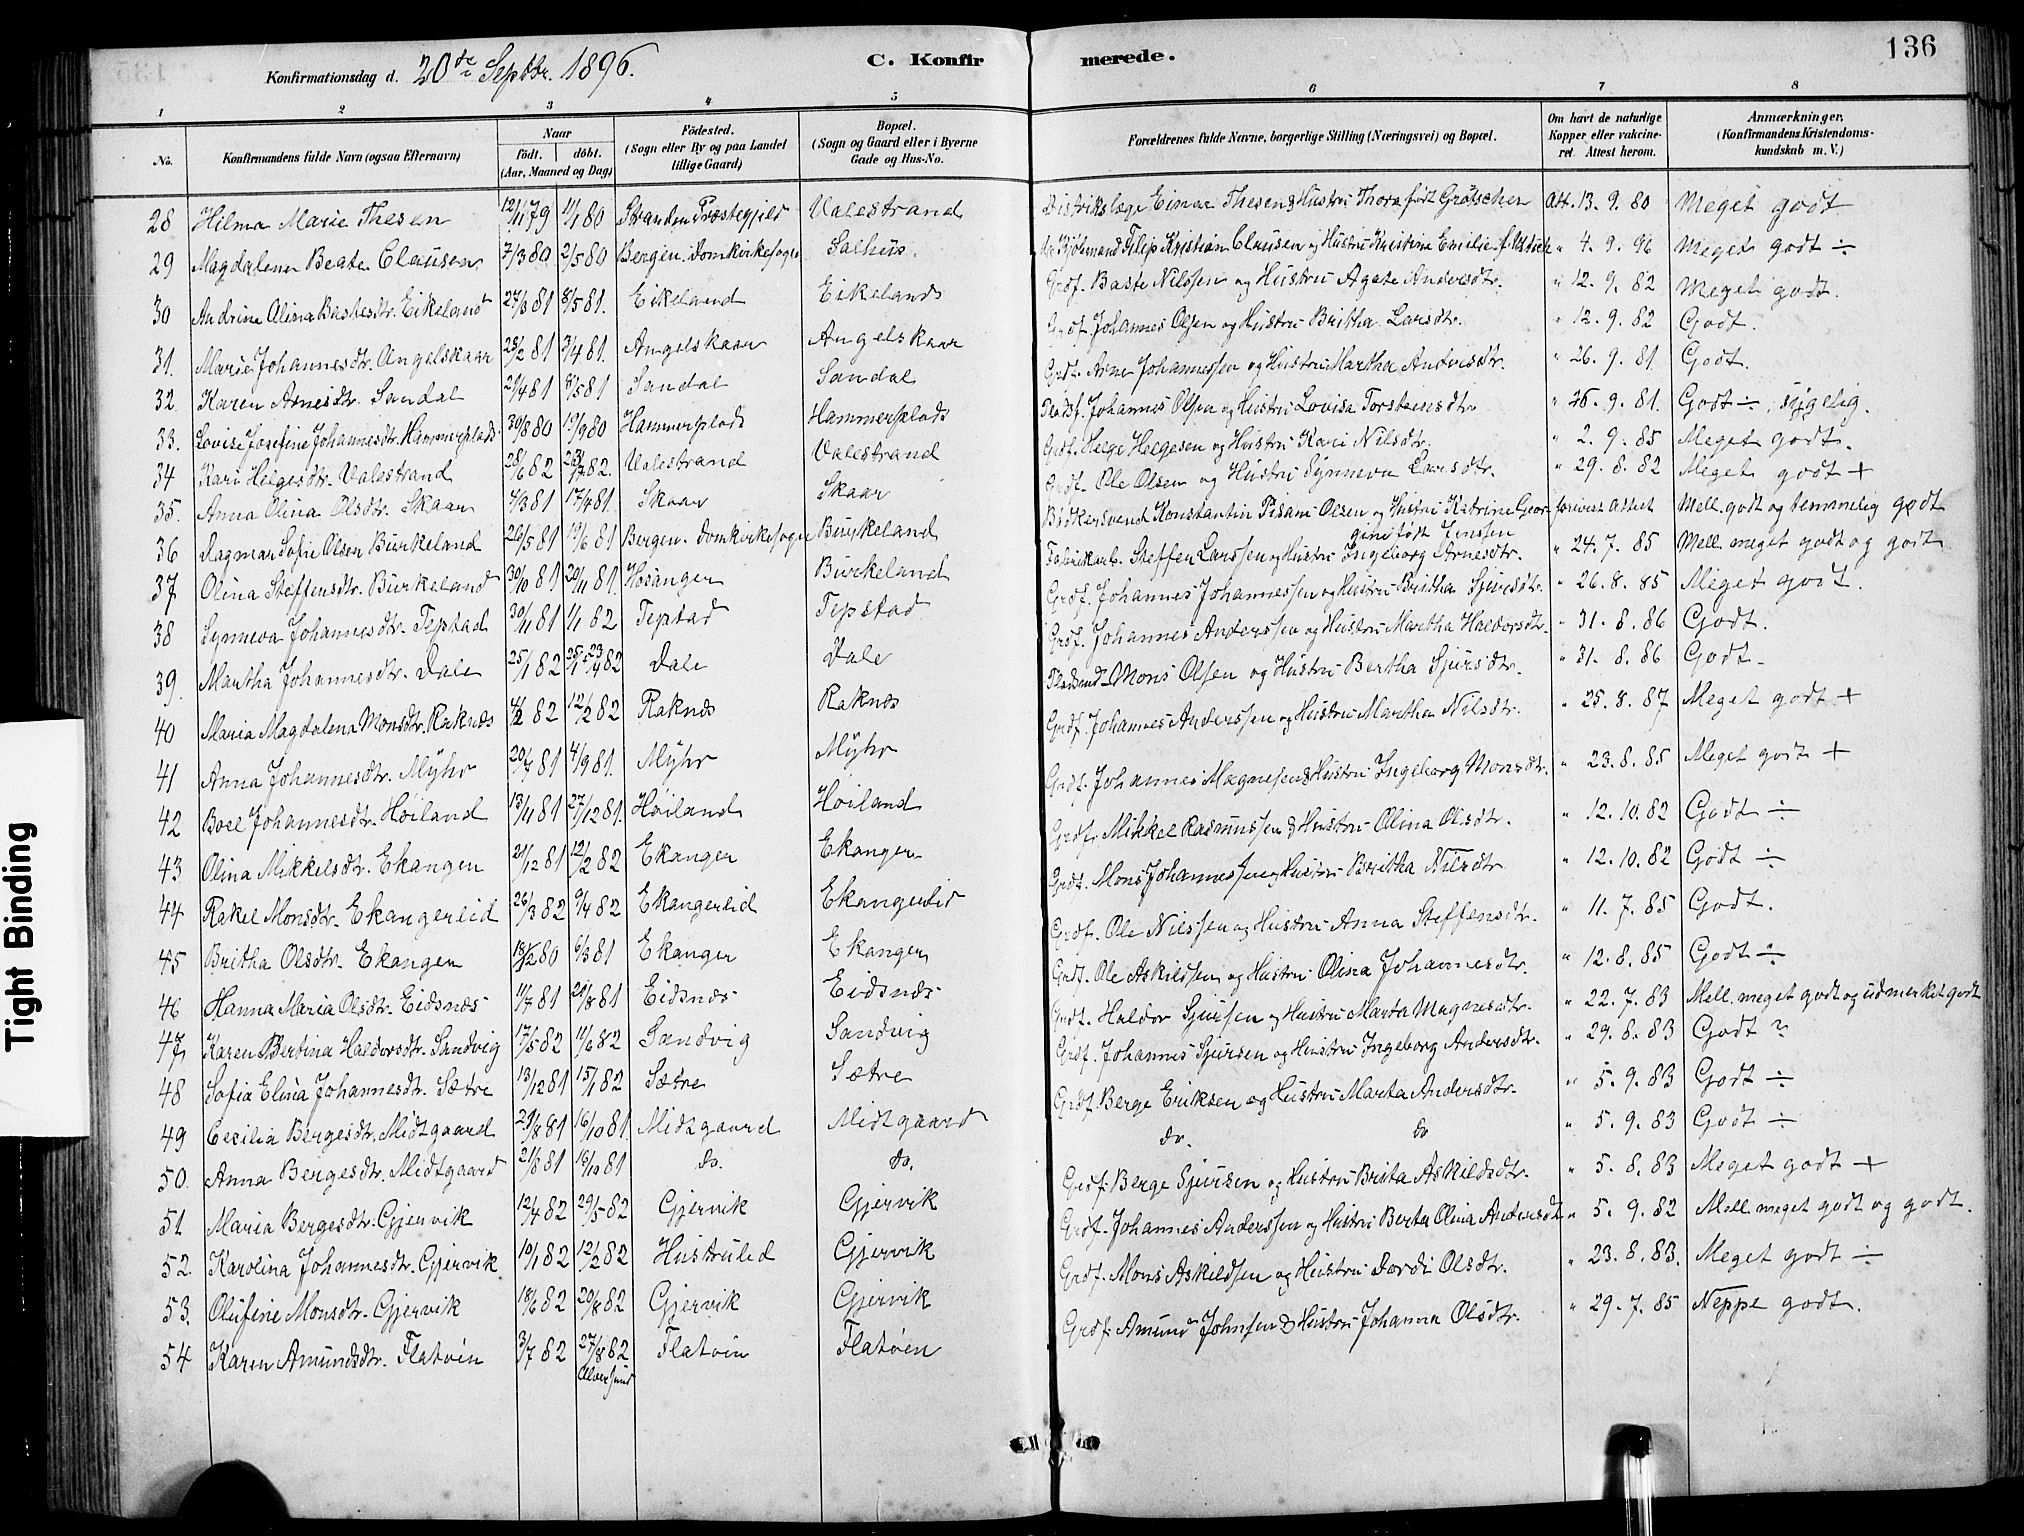 136
Konfirmationsdag d. 20de Septbr. 1896. C. Konfirmerede.
1 2 3 4 5 6 7 8
No. Konfirmandens fulde Navn (ogsaa Efternavn) Naar født. døbt. (Aar, Maaned og Dag) Fødested. (Sogn eller By og paa Landet tillige Gaard) Bopæl. (Sogn og Gaard eller i Byerne Gade og Hus-No. Forældrenes fulde Navne, borgerlige Stilling (Næringsvei) og Bopæl. Om havt de naturlige Kopper eller vakcineret. Attest herom. Anmærkninger. (Konfirmandens Kristendomskundskab m. V.)
28 Hilma Marie Thesen 12/11 79 1/1 80 Stranden Præstegjeld Valestrand Distriktslæge Eimar Thesen & Hustru Thora født Grötschen Att. 13. 9. 80 Meget godt
29 Magdalene Beate Clausen 7/3 80 2/5 80 Bergen. Domkirkesogn Salhus. Filip Kristian Clausen og Hustru Kristine Emilie " 4. 9. 96 Meget godt ÷
30 Andrine Olina Bastesdtr. Eikeland 27/3 81 8/5 81. Eikeland Eikeland Grdf. Baste Nilssen og Hustru Agate Andersdtr. " 12. 9. 82 Meget godt.
31. Marie Johannesdtr. Angelskaar 28/2 81 3/4 81. Angelskaar Angelskaar Grdf. Johannes Olsen og Hustru Britha Larsdtr. " 12. 9. 82 Godt.
32. Karen Arnesdtr. Sandal 2/4 81 8/5 81 Sandal Sandal Grdf. Arne Johannessen og Hustru Martha Andersdtr. " 26. 9. 81. Godt.
33. Lovise Josefine Johannesdtr. Hammersplads 30/8 80 19/9 80 Hammersplads Hammersplads Pladsf. Johannes Olsen og Hustru Lovisa Torsteinsdtr. " 26. 9. 81. Godt ÷, sygelig.
34 Kari Helgesdtr. Valestrand 28/6 82 23/7 82. Valestrand Valestrand Grdf. Helge Helgesen og Hustru Kari Nilsdtr. " 2. 9. 85 Meget godt.
35. Anna Olina Olsdtr. Skaar 4/3 81 17/4 81. Skaar Skaar Grdf. Ole Olsen og Hustru Synneva Larsdtr. " 29. 8. 82 Meget godt +
36 Dagmar Sofie Olsen Burkeland 26/5 81 19/6 81 Bergen. Domkirkesogn Burkeland Bødkersvend Konstantin Olsen og Hustru Katrine Georgine født Jenssen Attest Mell. godt og temmelig godt
37 Olina Steffensdtr. Burkeland 30/10 81 20/11 81. Hosanger Burkeland Fabrikarb. Steffen Larssen og Hustru Ingeborg Arnesdtr. " 24. 7. 85 Mell. meget godt og godt
38 Synneva Johannesdtr. Tepstad 30/11 81 1/1 82 Tepstad Tepstad Grdf. Johannes Johannessen og Hustru Britha Sjursdtr. " 26. 8. 85 Meget godt.
39. Martha Johannesdtr. Dale 25/1 82 25/1 - 23/4 82 Dale Dale Grdf. Johannes Anderssen og Hustru Martha Haldorsdtr. " 31. 8. 86 Godt.
40 Maria Magdalena Monsdtr. Raknes 4/2 82 12/2 82 Raknæs Raknæs Pladsmd. Mons Olsen og Hustru Bertha Sjursdtr. " 31. 8. 86 Godt.
41 Anna Johannesdtr. Myhr 20/7 81 4/9 81. Myhr Myhr Grdf. Johannes Anderssen og Hustru Martha Nilsdtr. " 25. 8. 87 Meget godt +
42 Boel Johannesdtr. Høiland 13/11 81 27/12 81. Høiland Høiland Grdf. Johannes Magnesen & Hustru Ingeborg Monsdtr. " 23. 8. 85 Meget godt +
43 Olina Mikkelsdtr. Ekanger 21/12 81 12/2 82 Ekanger Ekanger Grdf. Mikkel Rasmussen & Hustru Olina Olsdtr. " 12. 10. 82 Godt ÷
44 Rakel Monsdtr. Ekangerlid 26/3 82 9/4 82 Ekangerlid Ekangerlid Grdf. Mons Johannessen og Hustru Britha Nilsdtr " 12. 10. 82 Godt ÷
45 Britha Olsdtr. Ekanger 18/12 80 6/3 81 Ekanger Ekanger Grdf. Ole Nilssen og Hustru Anna Steffensdtr. " 11. 7. 85 Godt.
46 Hanna Maria Olsdtr. Eidsnæs 11/7 81 21/8 81 Eidsnæs Eidsnæs Grdf. Ole Askilssen og Hustru Olina Johannesdtr. " 12. 8. 85 Godt ÷
47 Karen Bertina Haldorsdtr. Sandvig 17/5 82 11/6 82 Sandvig Sandvig Grdf. Haldor Sjursen og Hustru Marta Magnesdtr. " 22. 7. 83 Mell. meget godt og udmerket godt
48 Sofia Elina Johannesdtr. Sætre 13/12 81 15/1 82 Sætre Sætre Grdf. Johannes Sjursen og Hustru Ingeborg Andersdtr. " 29. 8. 83 Godt ?
49 Cecilia Bergesdtr. Midtgaard 21/8 81 16/10 81. Midtgaard Midtgaard Grdf. Berge Eriksen og Hustru Marta Andersdtr. " 5. 9. 83 Godt ÷
50. Anna Bergesdtr. Midtgaard 21/8 81 16/10 81 do. do. do. do " 5. 9. 83 Godt ÷
51 Maria Bergesdtr. Gjervik 12/4 82 29/5 82 Gjervik Gjervik Grdf. Berge Sjursen og Hustru Brita Askildsdtr. " 5. 8. 83 Meget godt +
52. Karolina Johannesdtr. Gjervik 10/1 82 12/2 82 Hustruled Gjervik Grdf. Johannes Anderssen og Hustru Berta Olina Andersdtr " 5. 9. 82 Mell. meget godt og godt.
53. Olufine Monsdtr. Gjervik 18/6 82 20/8 82 Gjervik Gjervik Grdf. Mons Askildsen og Hustru Dordi Olsdtr. " 23. 8. 83. Meget godt ÷
54 Karen Amundsdtr. Flatøen 3/7 82 27/8 82 Alversund Flatøen Flatøen Grdf. Amund Johnsen & Hustru Johanna Olsdtr. " 29. 7. 85 Neppe godt.
Tight Binding